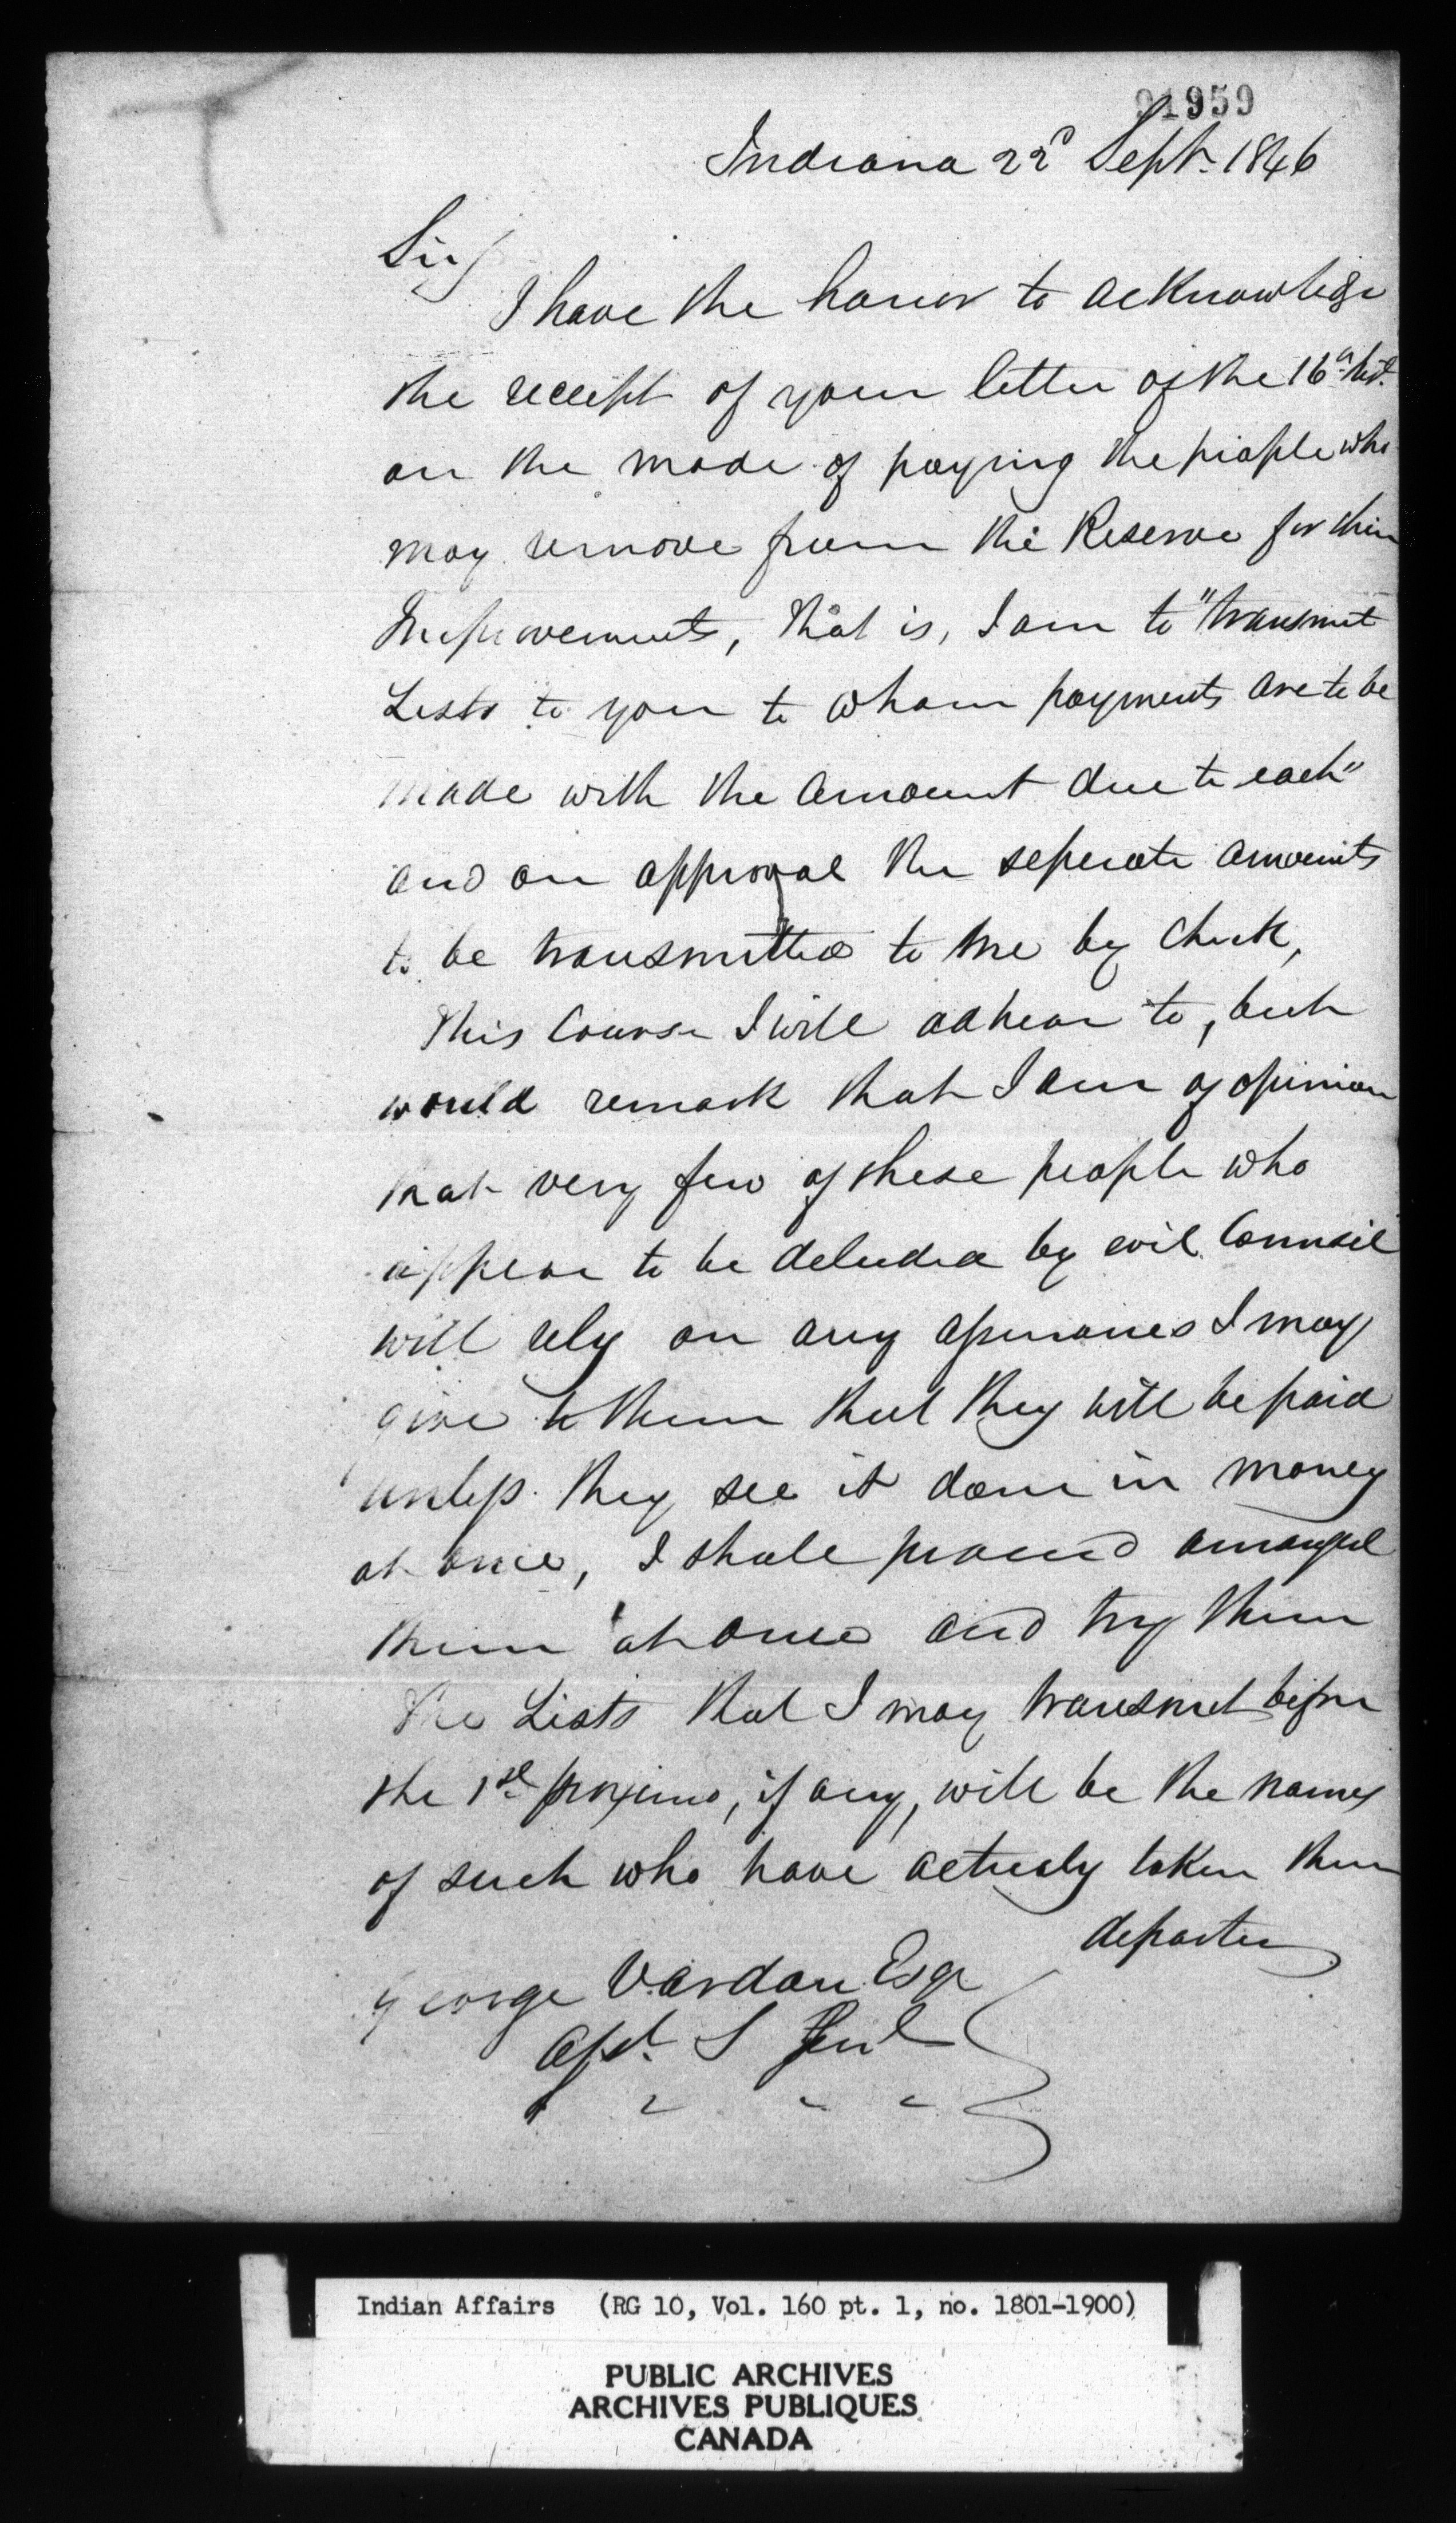 91959
Indiana 22d Sept. 1846
Sir
I have the honor to acknowledge
the receipt of your letter of the 16th Inst.
on the mode of paying the people who
may remove from the Reserve for their
Improvements, that is, I am to "transmit
Lists to you to whom payments are to be
made with the amount due to each"
and on approval the seperate amounts
to be transmitted to me by Check,
This Course I will adhear to, but
would remark that I am of opinion
that very few of these people who
appear to be deluded by evil Council
will rely on any I may
give to them that they will be paid
unless they see it done in money
at once, I shall proceed amongst
them at once and try them
the Lists that I may transmit before
the 1st proximo, if any, will be the names
of such who have actualy taken their
departure
George Vardon Esqr
Asst. S Genl
" " "
Indian Affairs (RG 10, Vol. 160 pt. 1, no. 1801-1900)
PUBLIC ARCHIVES
ARCHIVES PUBLIQUES
CANADA